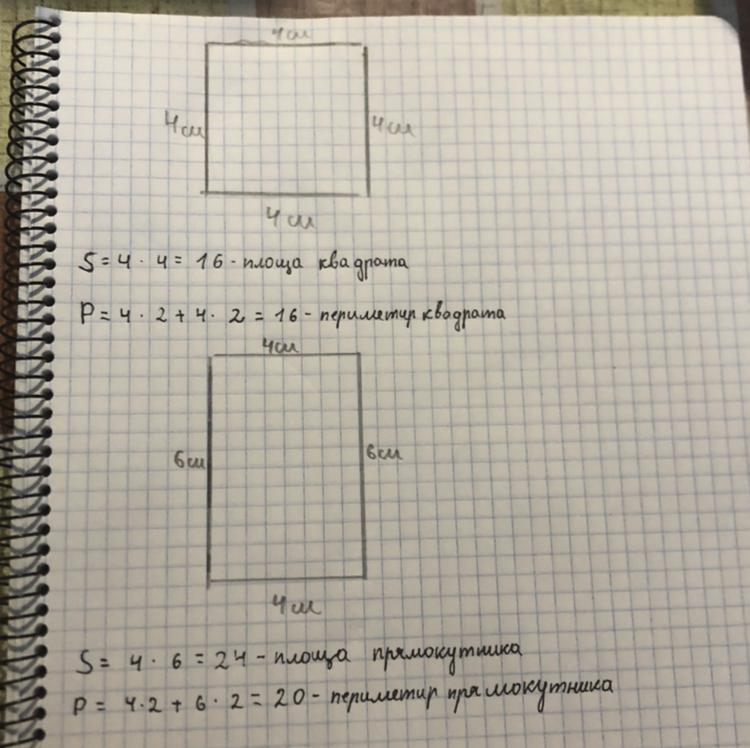 4см
4см 4см
4см
S = 4 · 4 = 16 - площа квадрата
P = 4 · 2 + 4 · 2 = 16 - периметир квадрата
4см
6см 6см
4см
S = 4 · 6 = 24 - площа прямокутника
P = 4 · 2 + 6 · 2 = 20 - периметир прямокутника